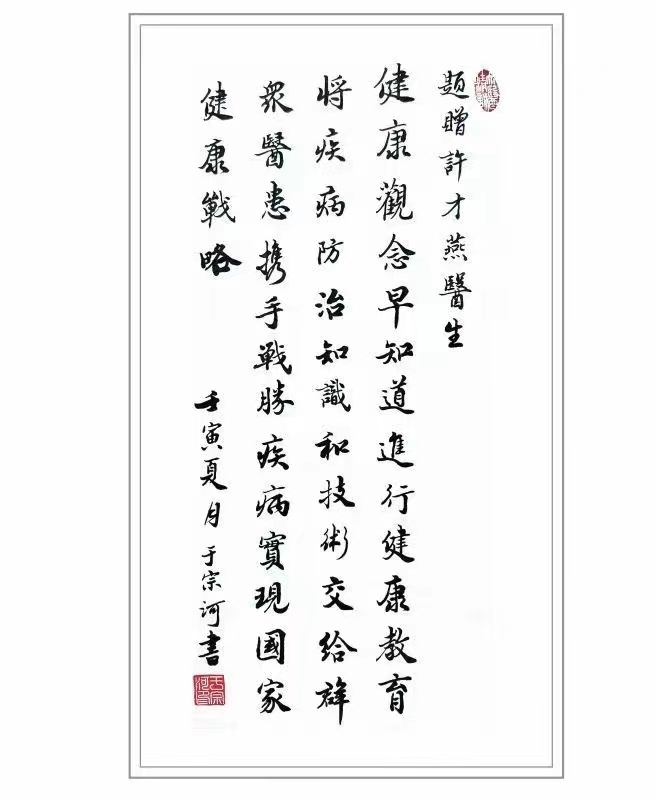 題贈許才燕醫生
健康觀念早知道進行健康教育
將疾病防治知識和技術交給群
眾醫患携手戰勝疾病實現國家
健康戰略
壬寅夏月于宗河書